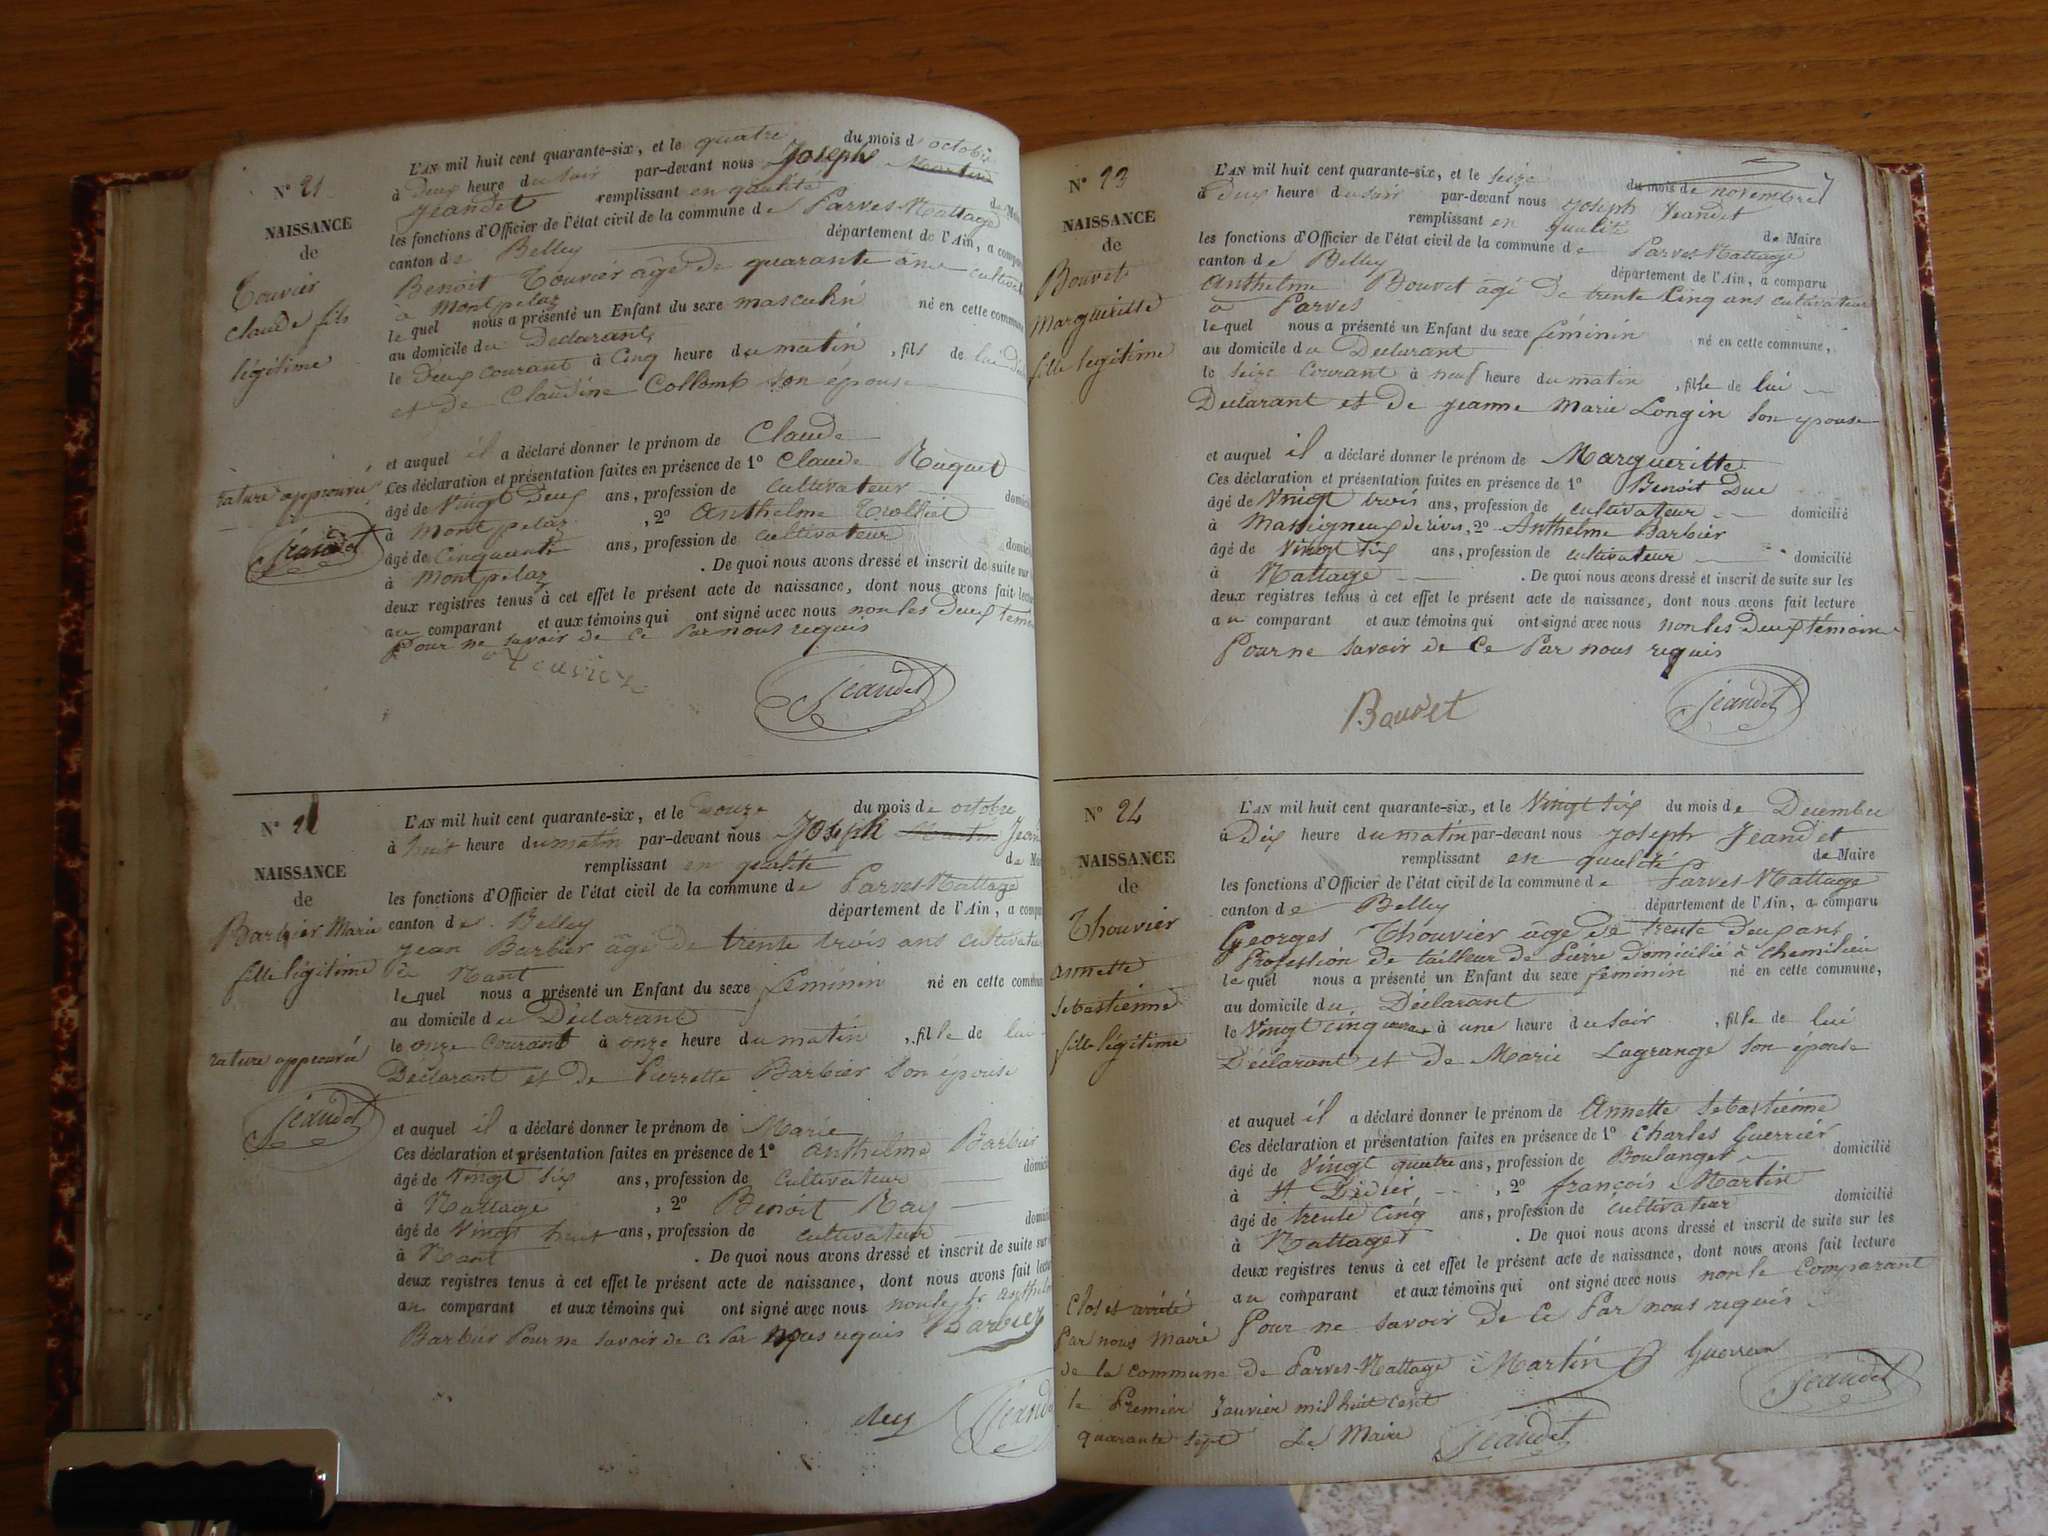 N° 21
NAISSANCE
de
Touvier
Claude fils
légitime
rature approuvée
Jeandet
L'AN mil huit cent quarante-six, et le quatre du mois d'octobre
à Deux heure du soir par-devant nous Joseph Martin
Jeandet remplissant en qualité de Maire
les fonctions d'Officier de l'état civil de la commune de Parves-Nattage
canton de Belley département de l'Ain, a comparu
Benoit Touvier âgé de quarante ans cultivateur
à Montpelaz
le quel nous a présenté un Enfant du sexe masculin né en cette commune
au domicile du Déclarant
le Deux courant à Cinq heure du matin, fils de lui
et de Claudine Collomb son épouse
et auquel il a déclaré donner le prénom de Claude
Ces déclaration et présentation faites en présence de 1° Claude Ruguet
âgé de Vingt Deux ans, profession de cultivateur domicilié
à Montpelaz, 2° Anthelme Trolliet
âgé de Cinquante ans, profession de cultivateur domicilié
à Montpelaz. De quoi nous avons dressé et inscrit de suite sur
deux registres tenus à cet effet le présent acte de naissance, dont nous avons fait lecture
au comparant et aux témoins qui ont signé avec nous non les Deux témoins
Pour ne savoir de ce Par nous requis
Touvier
Jeandet
N° 22
NAISSANCE
de
Barbier Marie
fille légitime
rature approuvée
Jeandet
L'AN mil huit cent quarante-six, et le onze du mois de octobre
à huit heure du matin par-devant nous Joseph Martin
remplissant en qualité de Maire
les fonctions d'Officier de l'état civil de la commune de Parves-Nattage
canton de Belley département de l'Ain, a comparu
Jean Barbier âgé de trente trois ans cultivateur
à Nant
le quel nous a présenté un Enfant du sexe féminin né en cette commune
au domicile du Déclarant
le onze courant à onze heure du matin, fille de lui
Déclarant et de Pierrette Barbier Son épouse
et auquel il a déclaré donner le prénom de Marie
Ces déclaration et présentation faites en présence de 1° Anthelme Barbier
âgé de vingt six ans, profession de cultivateur domicilié
à Nattage, 2° Benoit Ray
âgé de Vingt huit ans, profession de cultivateur domicilié
à Nant. De quoi nous avons dressé et inscrit de suite sur
deux registres tenus à cet effet le présent acte de naissance, dont nous avons fait lecture
au comparant et aux témoins qui ont signé avec nous non le Sr Anthelme
Barbier Pour ne savoir de ce Par nous requis Barbier
Jeandet
N° 23
NAISSANCE
de
Bouvet
Margueritte
fille légitime
L'AN mil huit cent quarante-six, et le seize du mois de novembre
à Deux heure du soir par-devant nous Joseph Jeandet
remplissant en qualité de Maire
les fonctions d'Officier de l'état civil de la commune de Parves-Nattage
canton de Belley département de l'Ain, a comparu
Anthelme Bouvet âgé de trente Cinq ans cultivateur
à Parves
le quel nous a présenté un Enfant du sexe féminin né en cette commune,
au domicile du Déclarant
le seize courant à neuf heure du matin, fille de lui
Déclarant et de Jeanne Marie Longin Son épouse
et auquel il a déclaré donner le prénom de Margueritte
Ces déclaration et présentation faites en présence de 1° Benoit Duc
âgé de Vingt trois ans, profession de cultivateur domicilié
à Massigneux de rives, 2° Anthelme Barbier
âgé de Vingt six ans, profession de cultivateur domicilié
à Nattage. De quoi nous avons dressé et inscrit de suite sur les
deux registres tenus à cet effet le présent acte de naissance, dont nous avons fait lecture
au comparant et aux témoins qui ont signé avec nous non les Deux témoins
Pour ne savoir de Ce Par nous requis
Bouvet
Jeandet
N° 24
NAISSANCE
de
Thouvier
Annette
Sebastienne
fille légitime
L'AN mil huit cent quarante-six, et le Vingt six du mois de Decembre
à Dix heure du matin par-devant nous Joseph Jeandet
remplissant en qualité de Maire
les fonctions d'Officier de l'état civil de la commune de Parves-Nattage
canton de Belley département de l'Ain, a comparu
Georges Thouvier âgé de trente Deux ans
Profession de tailleur de Pierre Domicilié à Chemilieu
le quel nous a présenté un Enfant du sexe féminin né en cette commune,
au domicile du Déclarant
le Vingt cinq à une heure du soir, fille de lui
Déclarant et de Marie Lagrange Son épouse
et auquel il a déclaré donner le prénom de Annette Sebastienne
Ces déclaration et présentation faites en présence de 1° Charles Guerrier
âgé de Vingt quatre ans, profession de Boulanger domicilié
à St Didier, 2° françois Martin
âgé de trente Cinq ans, profession de cultivateur domicilié
à Nattages. De quoi nous avons dressé et inscrit de suite sur les
deux registres tenus à cet effet le présent acte de naissance, dont nous avons fait lecture
au comparant et aux témoins qui ont signé avec nous non le Comparant
Pour ne savoir de Ce Par nous requis
Martin
Jeandet
Clos et arrêté
Par nous Maire
de la commune de Parves-Nattage
le Premier Janvier mil huit cent
quarante sept Le Maire Jeandet